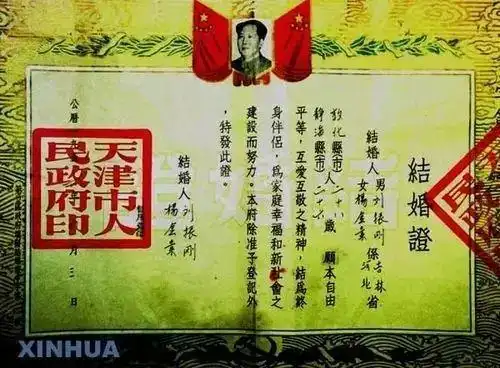 結婚證
結婚人 男 刘振刚 係 吉林 省
女 楊金業 河北
敦化縣(市)人二十 歲 願本自由
靜海縣(市) 二十
平等，互爱互敬之精神，結爲終
身伴侣，爲家庭幸福和新社會之
建設而努力。本府除准予登記外
，特發此證。
結婚人 刘振刚
楊金業
天津市人
民政府印
公曆
月 三 日
XINHUA